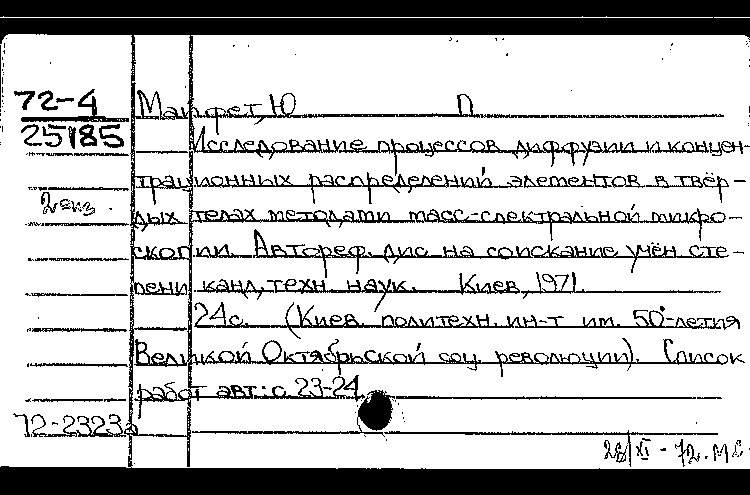 72-4 Манфет, Ю П
25185 Исследование процессов диффузии и концен-
2 экз. трационных распределений элементов в твёр-
дых телах методами масс-спектральной микро-
скопии. Автореф. дис. на соискание учён. сте-
пени канд. техн. наук. Киев, 1971.
24с. (Киев. политехн. ин-т им. 50-летия
Великой Октябрьской соц. революции). Список
работ авт.: с. 23-24
72-2323а
28/XI - 72. М.С.